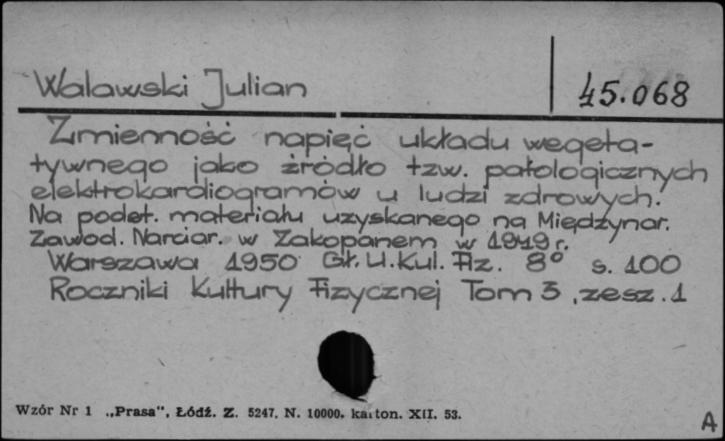 Walawski Julian
45.068
Zmienność napięć układu wegeta-
tywnego jako źródło tzw. patologicznych
elektrokardiogramów u ludzi zdrowych.
Na podst. materiału uzyskanego na Międzynar.
Zawod. Narciar. w Zakopanem w 1949 r.
Warszawa 1950 Gł. U. Kul. Fiz. 8° s. 100
Roczniki Kultury Fizycznej Tom 3, zesz. 1
Wzór Nr 1 „Prasa", Łódź. Z. 5247. N. 10000. karton. XII. 53.
A